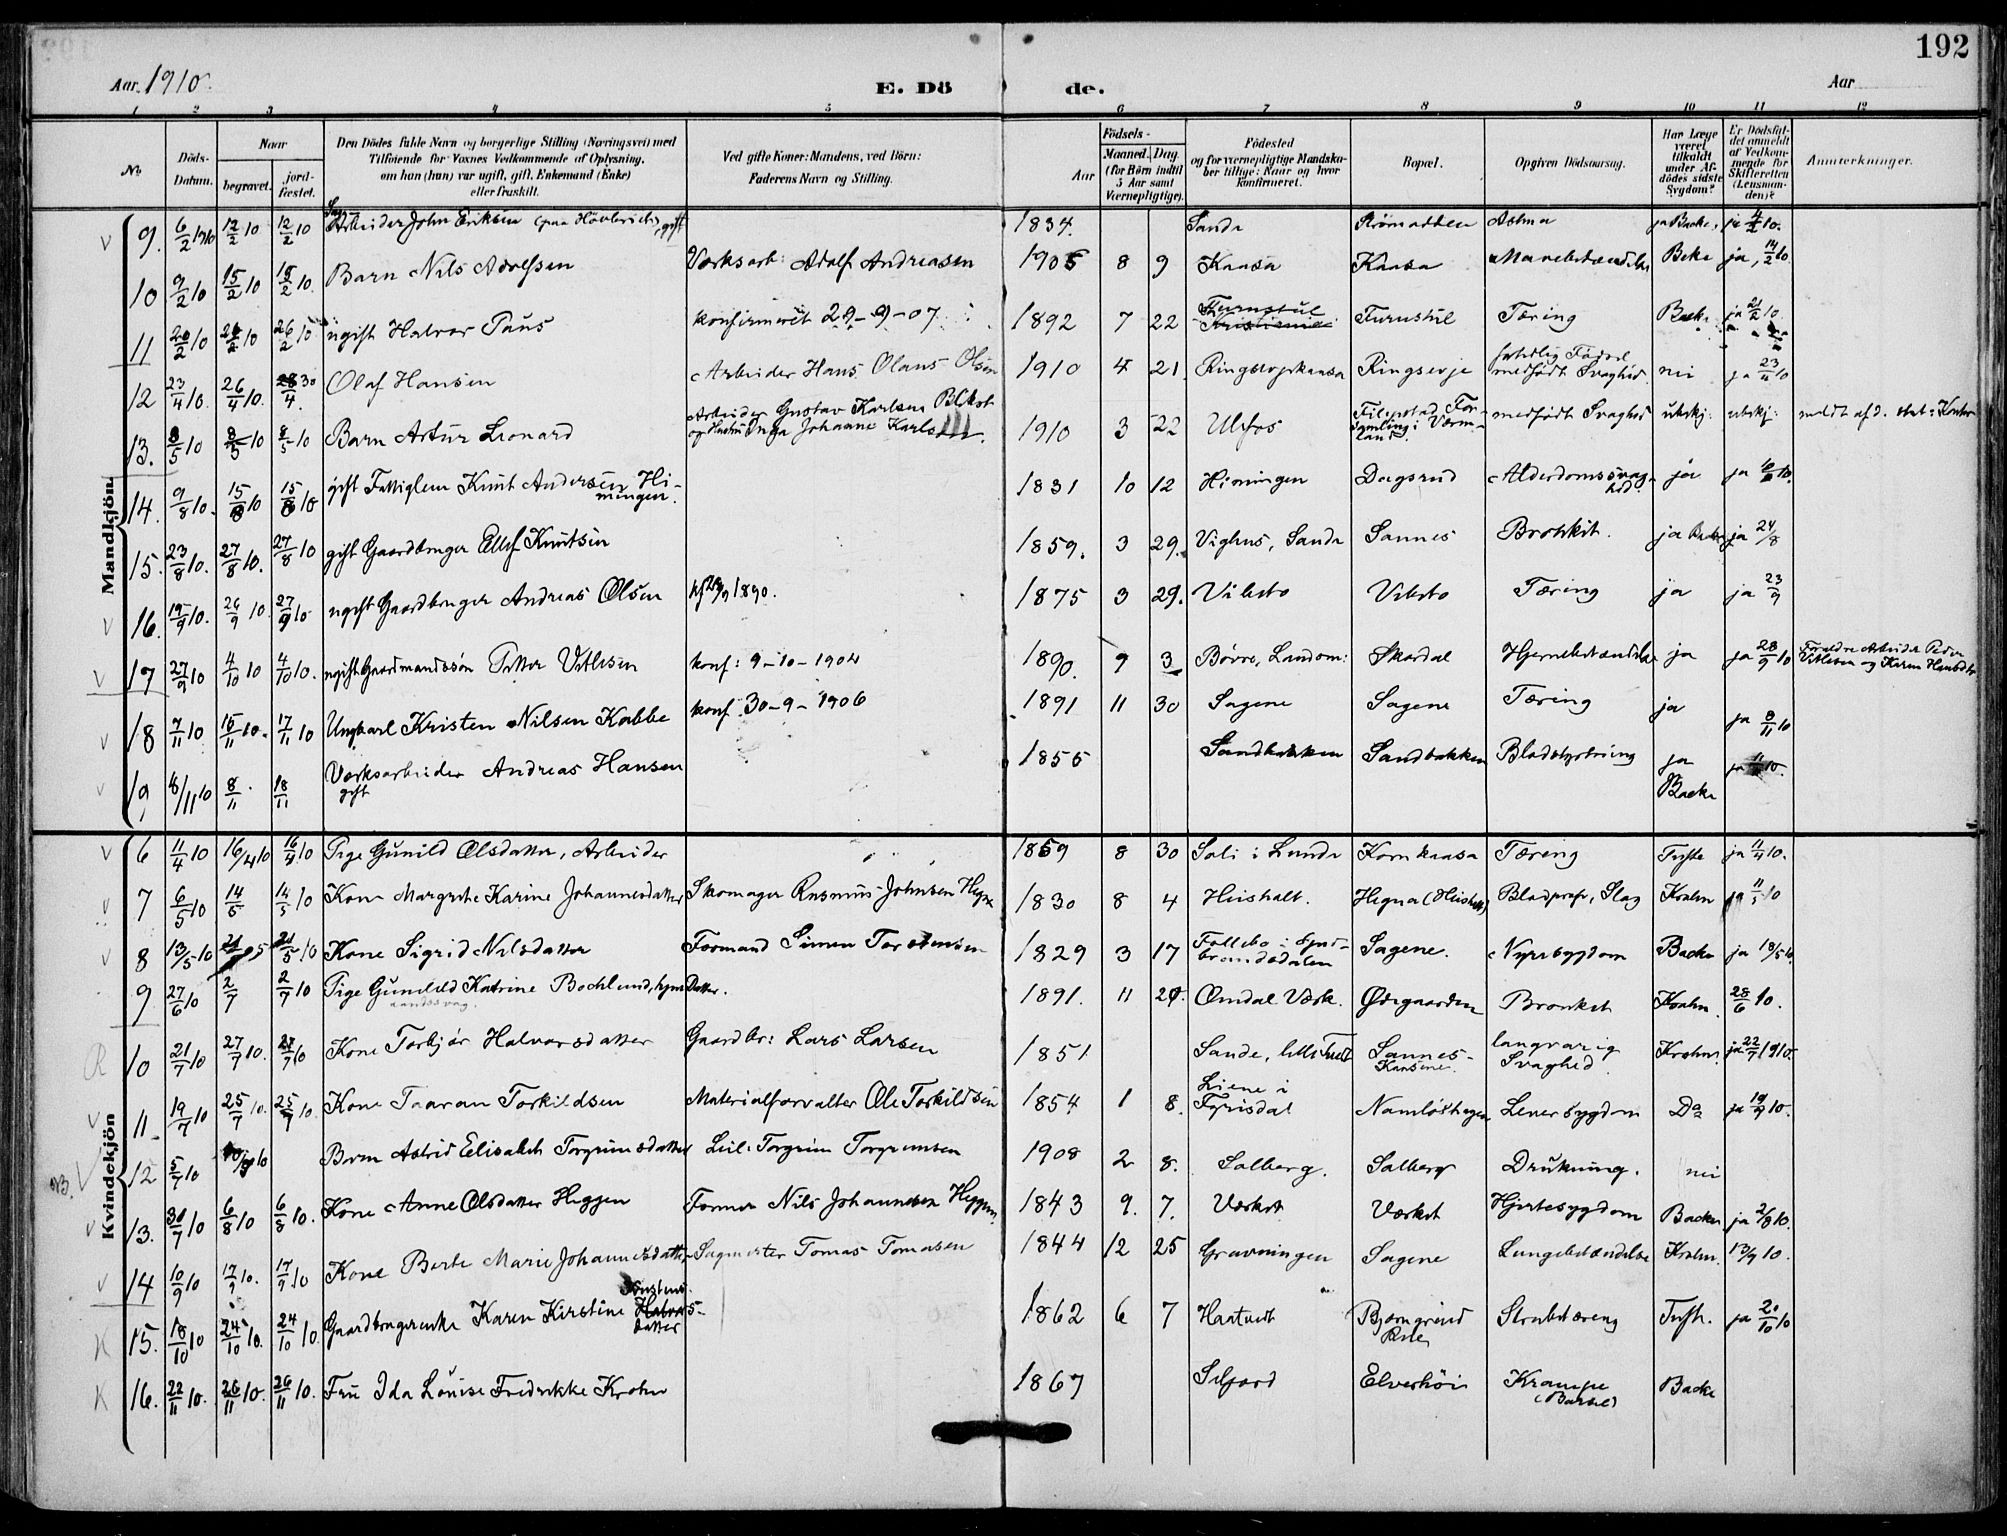 192
Aar 1910.
E. Döde.
Aar
1 2 3 4 5 6 7 8 9 10 11 12
No.
Döds-Datum.
Naar
begravet.
jordfæstet.
Den Dödes fulde Navn og borgerlige Stilling (Næringsvei) med Tilföiende for Voxnes Vedkommende af Oplysning, om han (hun) var ugift, gift, Enkemand (Enke) eller fraskilt.
Ved gifte Koner: Mandens, ved Börn: Faderens Navn og Stilling.
Födsels-
Aar
Maaned. Dag.
(for Börn indtil 5 Aar samt Værnepligtige).
Födested og for værnepligtige Mandskaber tillige: Naar og hvor konfirmeret.
Bopæl.
Opgiven Dödsaarsag.
Har Læge været tilkaldt under Afdödes sidste Sygdom?
Er Dödsfaldet anmeldt af Vedkommende for Skifteretten (Lensmanden)?
Anmerkninger.
Mandkjön
9. 6/2 1910 12/2 10 12/2 10 Arbeider John Eriksen gift 1834. Sande Astma ja Backe.
10 9/2 10 15/2 10 15/2 10. Barn Nils Adolfsen Verksarb: Adolf Andreasen 1905 8 9 Kaasa Kaasa ja, 14/2 10
11 20/2 10 26/2 10 26/2 10 ugift Halvor Paus konfirmeret 29-9-07 1892 7 22 Furustul Furustul Tæring Backe ja 21/2 10.
12 23/4 10. 26/4 10. 30/4. Olaf Hansen Arbeider Hans Olaus Olsen 1910 4 21. Ringsevje medfødt Svaghed. nei ja 23/4 10
13. 3/5 10 8/5 10 8/5 10 Barn Artur Leonard Arbeider Gustav Karlsen og Hustru Inga Johanne Karlsen. 1910 3 22 Ulefos medfødt Svaghed
14. 9/8 10. 15/8 10 15/8 10 gift Fattiglem Knut Andersen Himingen. 1831 10 12 Himingen Dagsrud Alderdomssvaghed. ja ja
15. 23/8 10. 27/8 10. 27/8 10 gift Gaardbruger Ellef Knutsen 1859. 3 29. Vighus, Sande Sannes Bronkit. ja ja 24/8
16. 19/9 10. 26/9 10. 27/9 10 ugift Gaardbruger Andreas Olsen 1890. 1875 3 29. Vibeto Vibeto Tæring ja ja 23/9
17 27/9 10 4/10 10 4/10 10. ugift Gaardmandssøn Petter Vetlesen konf: 9-10-1904 1890. 9 3 Skardal ja ja 28/9 10 Forældre Arbeider Peder Vetlesen og Karen Hansdtr
18 7/11 10 15/11 10. 17/11 10 Ungkarl Kristen Nilsen Kabbe konf. 30-9-1906 1891 11 30 Sagene Sagene Tæring ja ja 8/11 10
19 8/11 10 8/11. 18/11 Verksarbeider Andreas Hansen gift 1855 Sandbakken Sandbakken Blodstyrtning ja Backe ja 11/11 10.
Kvindekjön
6 11/4 10 16/4 10 16/4 10 Pige Gunild Olsdatter, Arbeider 1859 8 30 Soli i Lunde Kornkaasa Tæring Tufte ja 11/4 10.
7 6/5 10 14/5 14/5 10 Kone Margrete Karine Johannesdatter Skomager Rasmus Johnsen 1830 8 4 Heisholt. Hegna (Heisholt) Krohn ja 11/5 10
8 13/5 10 21/5 21/5 10 Kone Sigrid Nilsdatter Formand Simen Torstensen 1829 3 17 Follebo i Gudbrandsdalen Sagene. Nyresygdom Backe ja 18/5 10.
9 27/6 10 2/7 2/7 10 Pige Gunhild Katrine Bochlund, hjem Datter. aandssvag. 1891. 11 29. Omdal Værk. Ødegaarden Bronkit Krohn. 28/6 10.
10 21/7 10 27/7 10. 27/7 10 Kone Torbjør Halvorsdatter Gaardbr: Lars Larsen 1851 Sande, lille Sannes-Kaasene. langvarig Svaghed. Krohn. ja 22/7 1910
11 19/7 10 25/7 10. 25/7 10. Kone Taaran Torkildsen Materialforvalter Ole Torkildsen 1854 1 8. Liene i Fyrisdal Namløshagen Leversygdom Do ja 19/7 10.
12 5/7 10 10/7 10 Barn Astrid Elisabeth Torgrimsdatter Leil: Torgrim Torgrimsen 1908 2 8. Solberg. Solberg Drukning. nei
13. 30/7 10 6/8 10 6/8 10. Kone Anne Olsdatter Heggen Former Nils Johannesen Heggen 1843 9. 7. Værket Værket Hjertesygdom Backe ja 2/8 10.
14 10/9 10 17/9 10. 17/9 10 Kone Berte Marie Johannesdatter Sagmester Tomas Tomasen 1844 12 25 Gravningen Sagene Lungebetændelse Krohn. 13/9 10.
15. 18/10 10 24/10 10. 24/10 10. Gaardbrugerenke Karen Kirstine datter 1862 6 7 Haatveit Strubetæring Tufte. ja 20/10 10
16. 22/11 10. 26/11 10. 26/11 10. Fru Ida Louise Fredrikke Krohn 1867 Seljord Elverhöi Krampe (Barsel) Backe